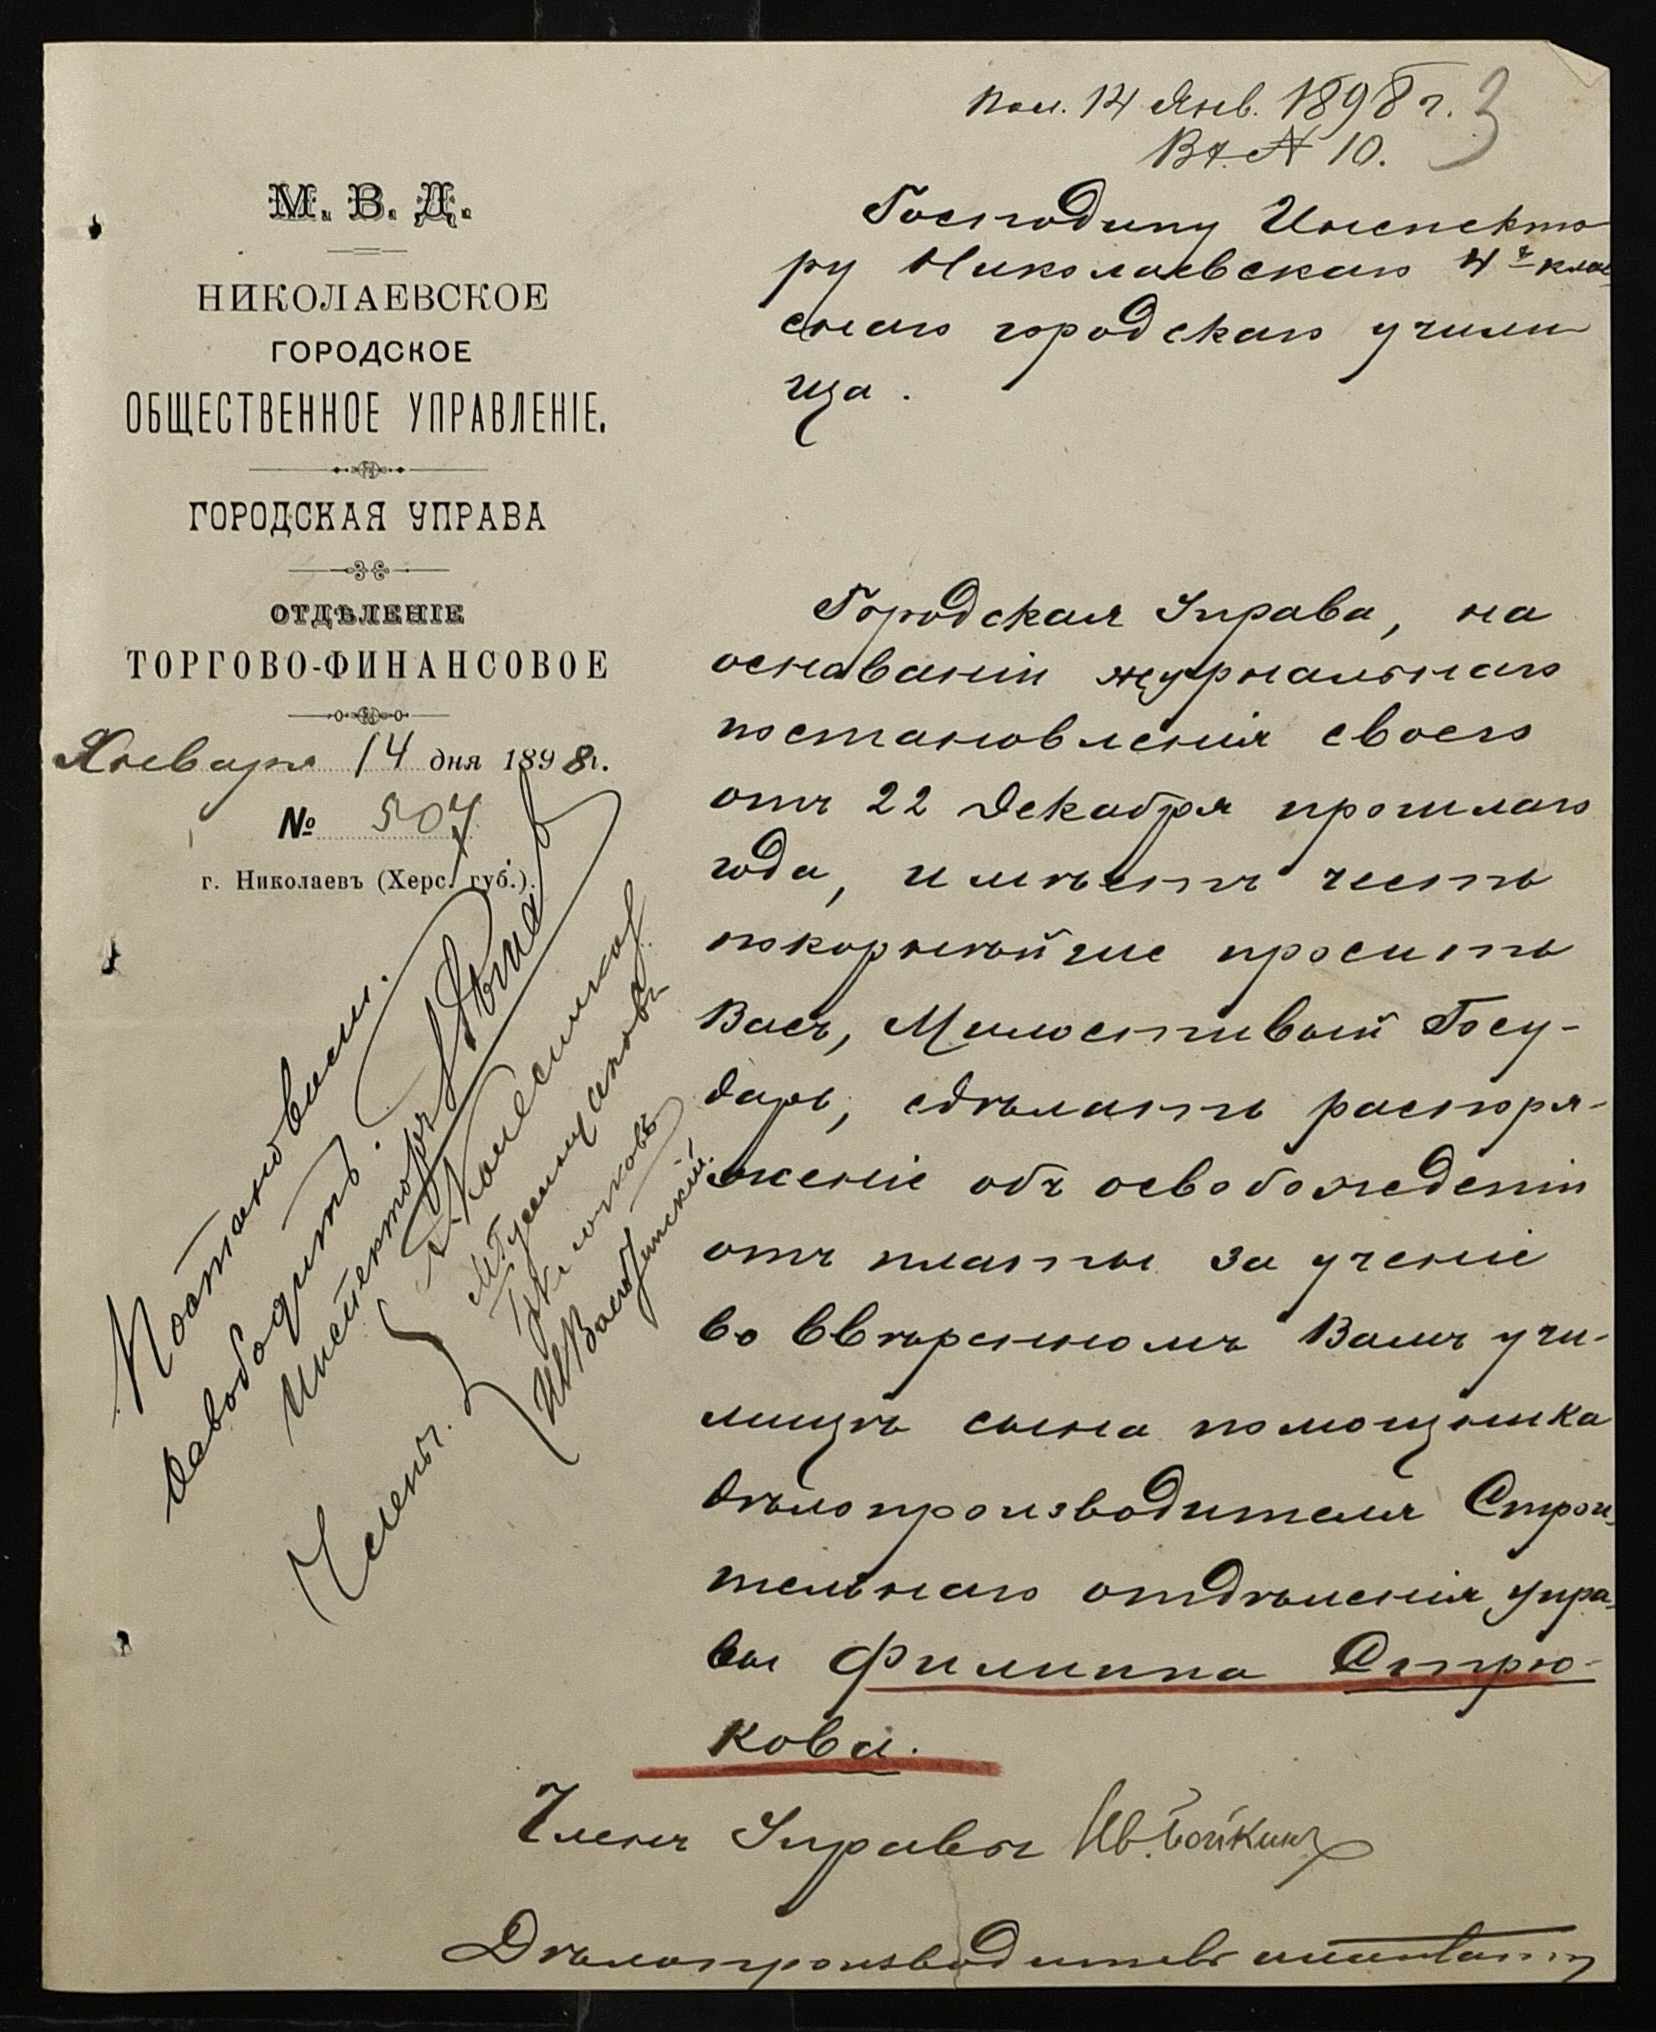 Пол. 14 Янв. 1898 г. 3
Вх. № 10.
М. В. Д.
НИКОЛАЕВСКОЕ
ГОРОДСКОЕ
ОБЩЕСТВЕННОЕ УПРАВЛЕНІЕ.
ГОРОДСКАЯ УПРАВА
ОТДѢЛЕНІЕ
ТОРГОВО-ФИНАНСОВОЕ
Января 14 дня 1898 г.
№ 507
г. Николаевъ (Херс. губ.).
Господину Инспекто
ру Николаевскаго 4х клас
снаго городскаго учили
ща.
Городская Управа, на
основаніи журнальнаго
постановленія своего
отъ 22 Декабря прошлаго
года, имѣетъ честь
покорнѣйше просить
Васъ, Милостивый Госу-
дарь, сдѣлать распоря-
женіе объ освобожденіи
отъ платы за ученіе
во ввѣренномъ Вамъ учи-
лищѣ сына помощника
дѣлопроизводителя Строи-
тельнаго отдѣленія Упра-
вы Филиппа Стрю-
кова.
Членъ Управы Ив. Бойкинъ
Дѣлопроизводитель
Постановили:
Освободить.
Инспекторъ
Члены:
Колесников